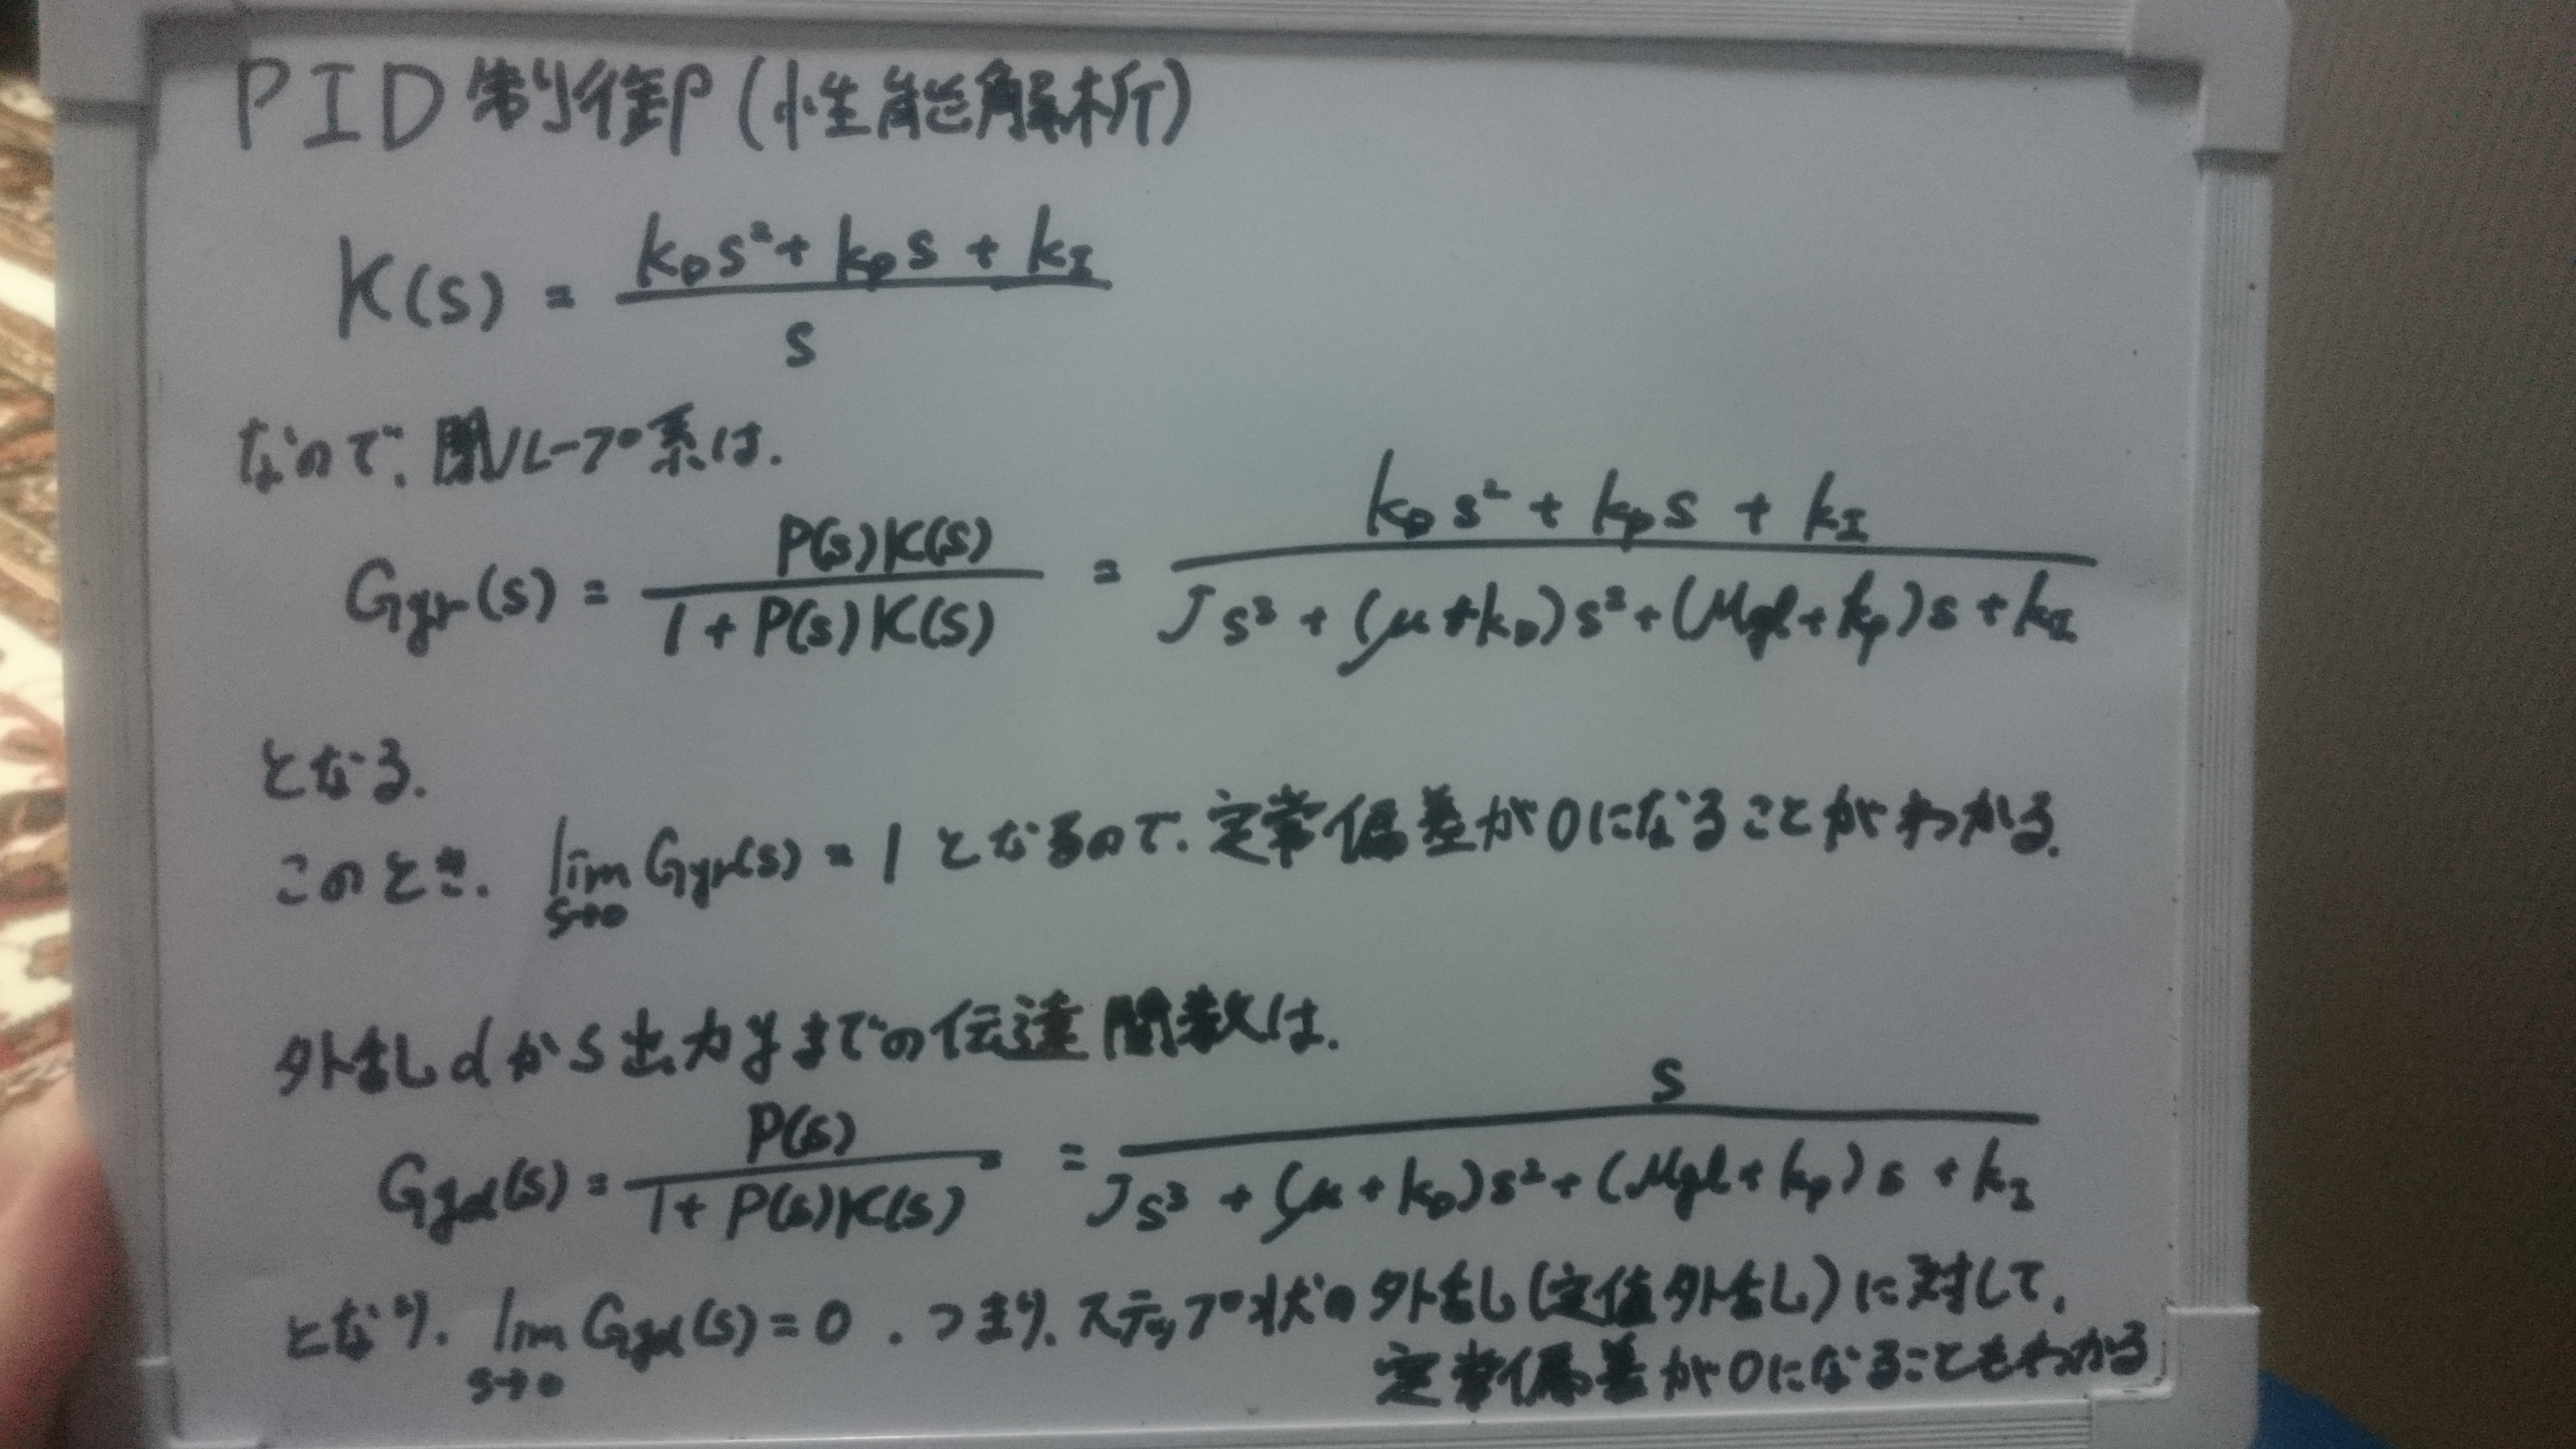 PID制御(性能解析)
K(s) = (k_D s² + k_P s + k_I) / s
なので、閉ループ系は、
G_yr(s) = P(s)K(s) / (1 + P(s)K(s)) = (k_D s² + k_P s + k_I) / (J s³ + (μ + k_D)s² + (Mgl + k_P)s + k_I)
となる.
このとき、 lim_{s→0} G_yr(s) = 1 となるので、定常偏差が0になることがわかる.
外乱dから出力yまでの伝達関数は、
G_yd(s) = P(s) / (1 + P(s)K(s)) = s / (J s³ + (μ + k_D)s² + (Mgl + k_P)s + k_I)
となり、 lim_{s→0} G_yd(s) = 0 . つまり、ステップ状の外乱(定値外乱)に対して、
定常偏差が0になることもわかる